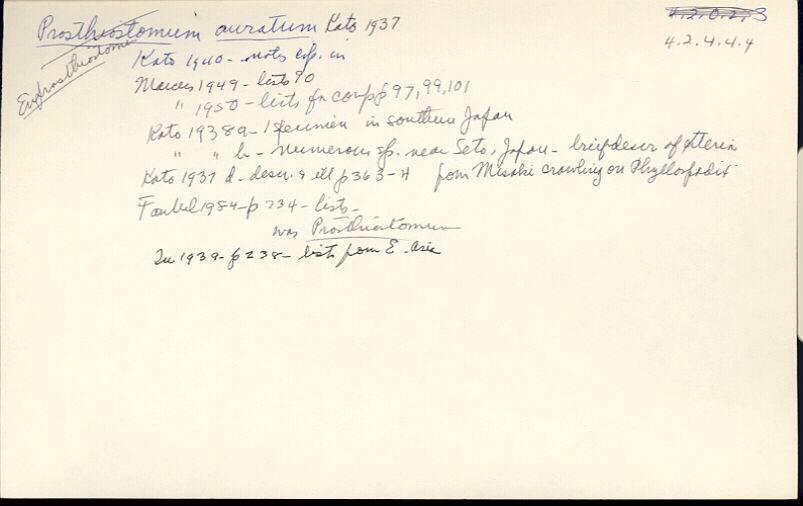 Prosthiostomum auratum Kato 1937
4.2.0.2.3
4.2.4.4.4
Euprosthiostomum
Kato 1940 - notes in
Marcus 1949 - lists 90
" 1950 - lists for comp p 97, 99, 101
Kato 1938a - 1 specimen in southern Japan
" " b - numerous sp. near Seto, Japan - brief descr of
Kato 1937 d - descr. & ill p 363-4 from Misaki crawling on Phyllospadix
Faubel 1984 - p 234 - lists -
was Prosthiostomum
1939 - p 238 - lists from E. Asia